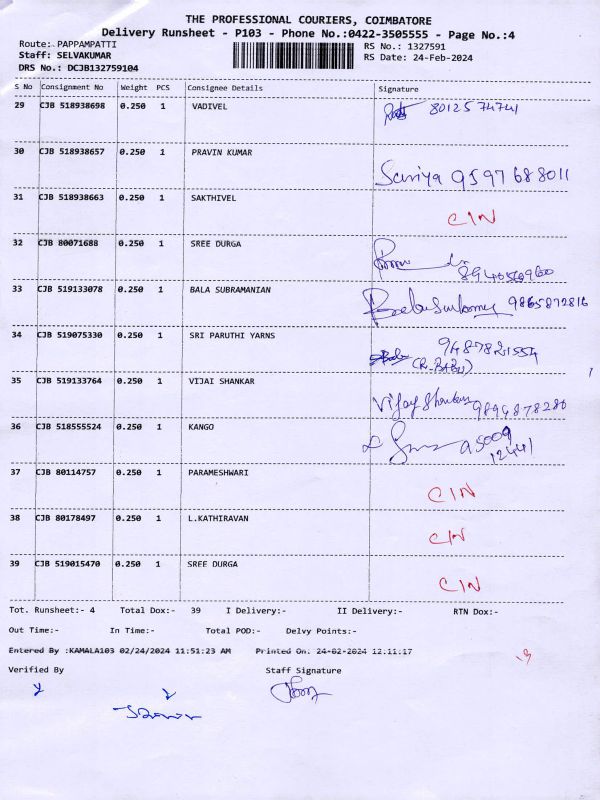 THE PROFESSIONAL COURIERS, COIMBATORE
Delivery Runsheet - P103 - Phone No.:0422-3505555 - Page No.:4
Route: PAPPAMPATTI RS No.: 1327591
Staff: SELVAKUMAR RS Date: 24-Feb-2024
DRS No.: DCJB132759104
S No Consignment No Weight PCS Consignee Details Signature
29 CJB 518938698 0.250 1 VADIVEL 8012574741
30 CJB 518938657 0.250 1 PRAVIN KUMAR Sariya 9597688011
31 CJB 518938663 0.250 1 SAKTHIVEL CIN
32 CJB 80071688 0.250 1 SREE DURGA
33 CJB 519133078 0.250 1 BALA SUBRAMANIAN 9865872816
34 CJB 519075330 0.250 1 SRI PARUTHI YARNS 9487821554
(R.BABU)
35 CJB 519133764 0.250 1 VIJAI SHANKAR Vijay Shankar 9894878280
36 CJB 518555524 0.250 1 KANGO 95009
12441
37 CJB 80114757 0.250 1 PARAMESHWARI CIN
38 CJB 80178497 0.250 1 L.KATHIRAVAN CIN
39 CJB 519015470 0.250 1 SREE DURGA CIN
Tot. Runsheet:- 4 Total Dox:- 39 I Delivery:- II Delivery:- RTN Dox:-
Out Time:- In Time:- Total POD:- Delvy Points:-
Entered By :KAMALA103 02/24/2024 11:51:23 AM Printed On: 24-02-2024 12:11:17
Verified By Staff Signature